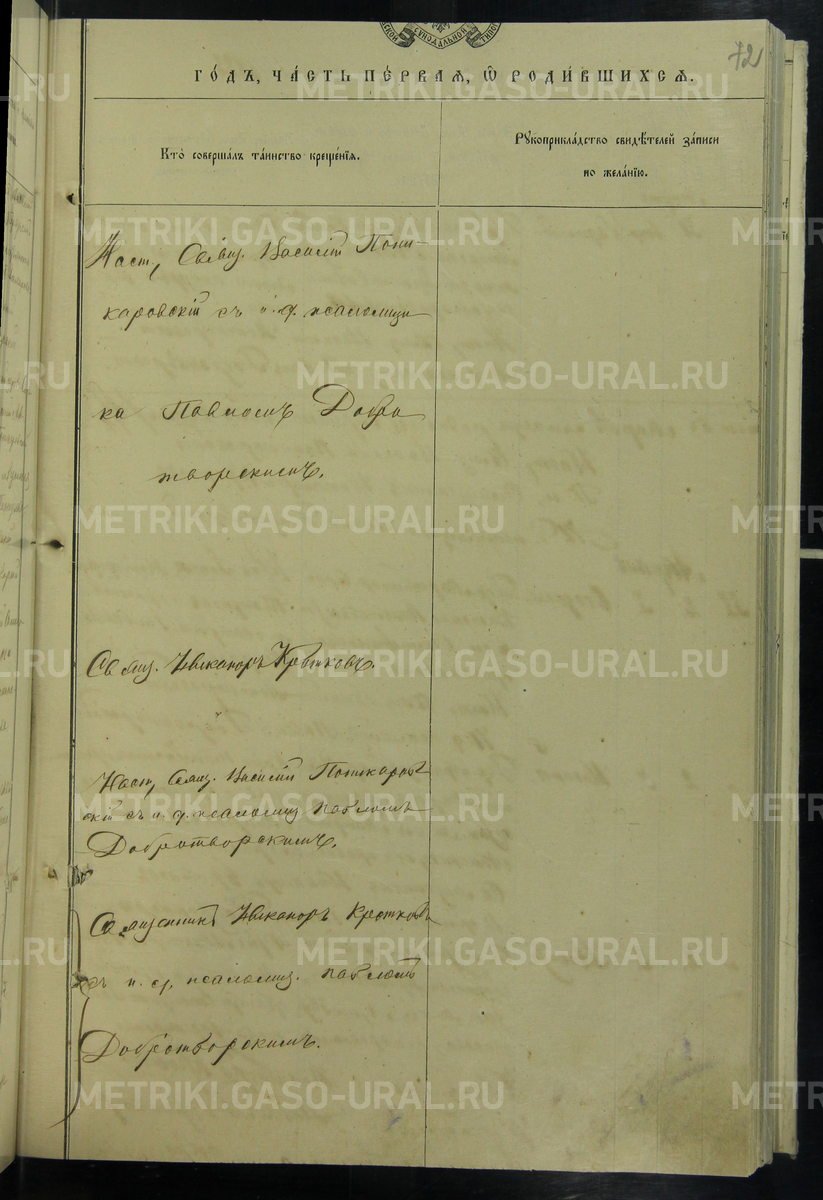 72
ГО́ДЪ, ЧА́СТЬ ПЕ́РВАѦ, Ѿ РОДИ́ВШИХСѦ.
Кто̀ соверша́лъ та́инство креще́нїѧ.
Рꙋкоприкла́дство свидѣ́телей за́писи
по жела́нїю.
Наст, Свящ. Василій Пони-
каровскій съ и. д. псаломщи
ка Павломъ Добро
творскимъ.
Свящ. Никаноръ Кротковъ.
Наст, Свящ. Василій Поникаров
скій съ и. д. псаломщ Павломъ
Добротворскимъ.
Священникъ Никаноръ Кротковъ
съ и. д. псаломщ. Павломъ
Добротворскимъ.
METRIKI.GASO-URAL.RU